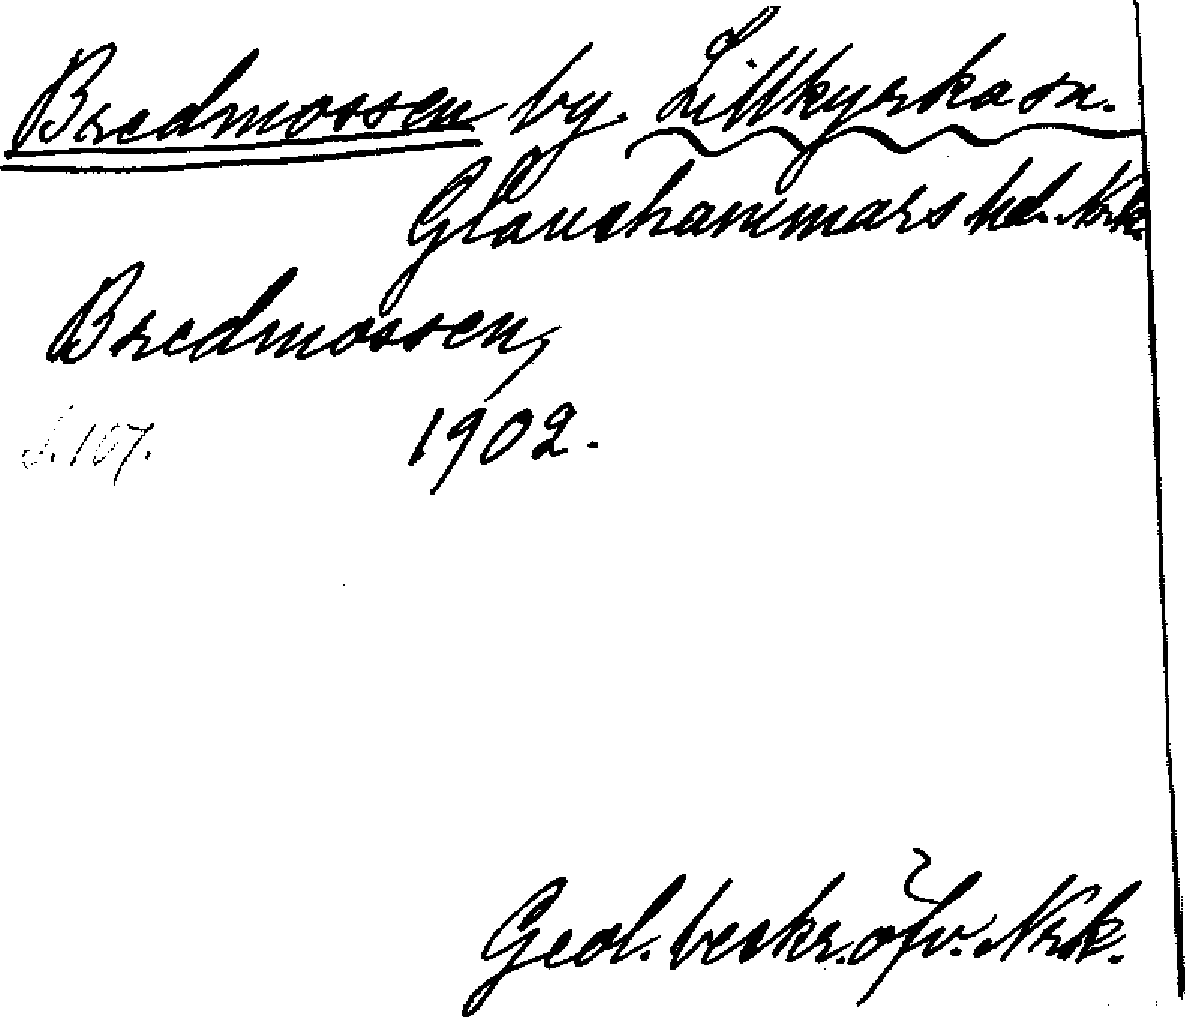 Bredmossen by. Lillkyrka sn.
Glanshammars hd. Nrk.
Bredmossen,
S. 107. 1902.
Geol. beskr. öfv. Nrk.